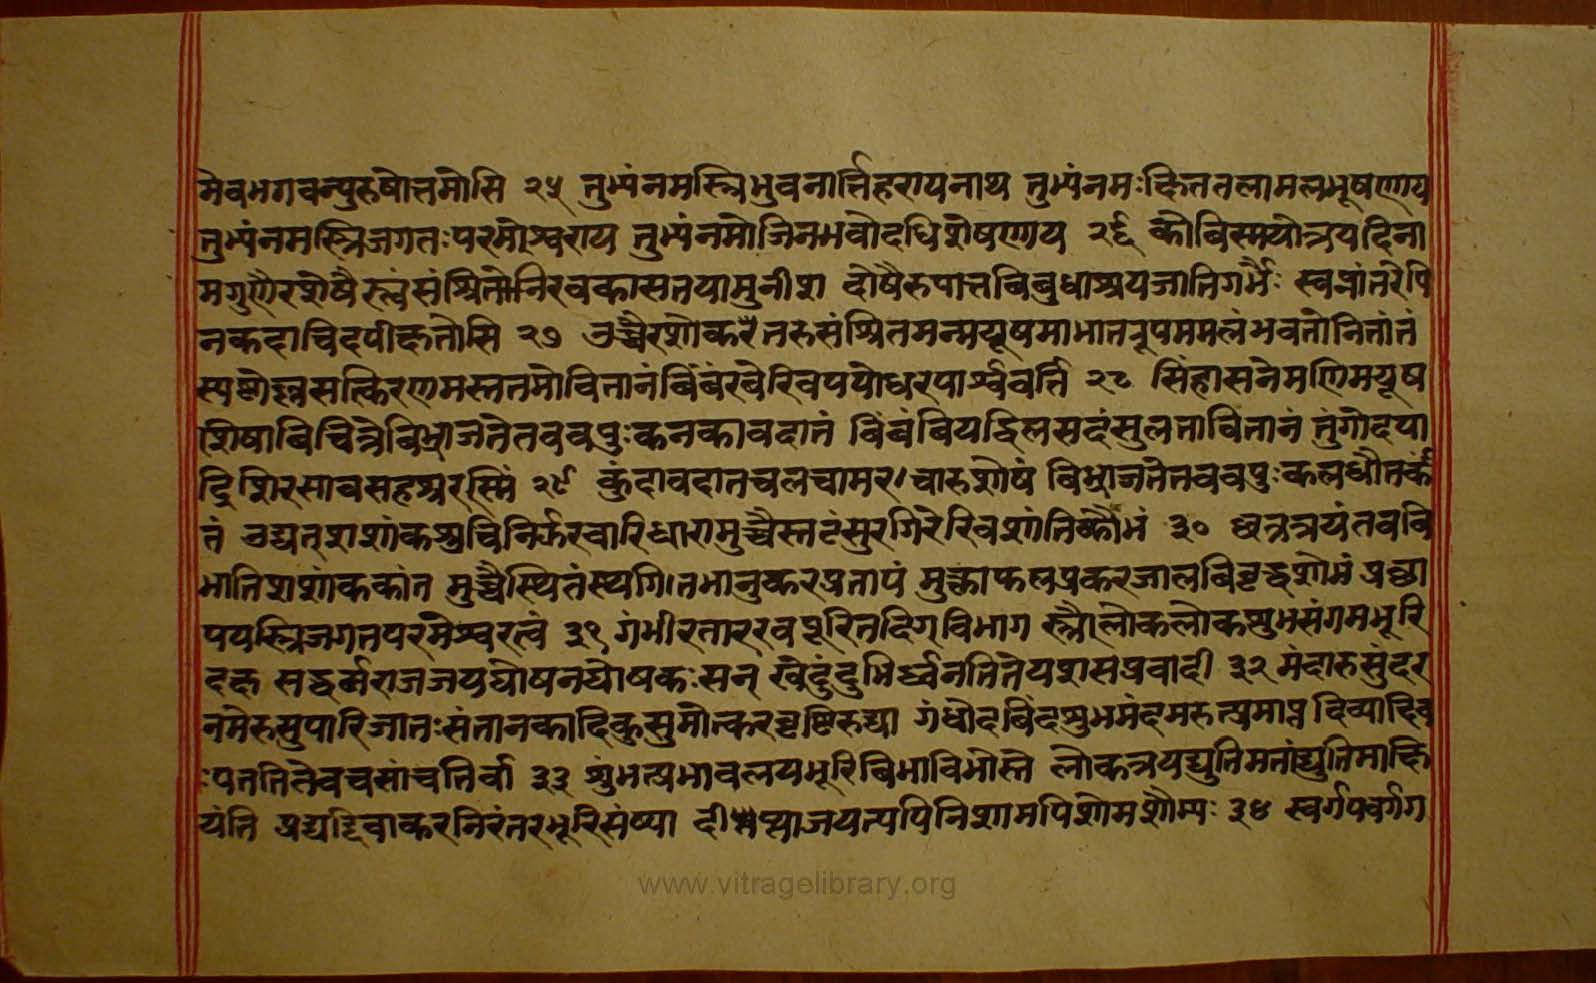 मेवभगवन्पुरुषोत्तमोसि २५ तुभ्यंनमस्त्रिभुवनार्त्तिहरायनाथ तुभ्यंनमःक्षिततलामलभूषणाय
तुभ्यंनमस्त्रिजगतःपरमोश्वराय तुभ्यंनमोजिनभवोदधिशेषणाय २६ कोविस्मयोत्रयदिना
मगुणैरशेषैस्त्वंसंश्रितोनिरवकासतयामुनीश दोषैरुपात्तविबुधाश्रयजातिगर्भैः स्वप्नांतरेपि
नकदाचिदपीक्षतोसि २७ उच्चैरशोकरैतरुसंश्रितमन्मयूषमाभातत्रूपममलंभवतोनितांतं
स्पष्टोल्लसत्किरणमस्ततमोवितानंबिंबंरवेरिवपयोधरपार्श्ववर्त्ति २८ सिंहासनेमणिमयूष
शिषाविचित्रेविभ्राजतेतववपुःकनकावदातं बिंबंवियद्विलसदंसुलताविंतानं तुंगोदया
द्रिशिरसावसहश्ररस्मिं २९ कुंदावदातचलचामर।चारुशोषं विभ्राजतेतववपुःकलधौतकं
तं उद्यत्शशांकशुचिनिर्फरवारिधारामुच्चैस्तटंसुरगिरेरिवशांतिकौंमं ३० छत्रत्रयंतववि
भातिशशांककांत मुच्चैस्थितंस्थगि।तभानुकरप्रतापं मुक्ताफलप्रकरजालविवृद्धशोभं प्रष्या
पयस्त्रिजगतपरमेश्वरत्वं ३१ गंभीरताररवपूरितदिग्विभाग स्त्रैलोकलोकशुभसंगमभूरि
दक्ष सद्धर्मराजजयघोषनघोषकःसन् खेदुंदुभिर्ध्वनतितेयशसप्रवादी ३२ मंदारुसुंदर
नंमेरुसुपारिजातःसंतानकादिकुसुमोत्करवृष्टिरुद्या गंधोदबिंदशुभमंदमरुत्प्रमाप्न दिव्यादिव
ःपततितेवचसांचतिर्वा ३३ शुंभत्प्रभावलयभूरिबिभाविभोस्ते लोकत्रयद्युतिमतांद्युतिमाक्षि
यंति प्रद्यद्दिवाकरनिरंतरभूरिसंष्या दीप्त्याजयत्यपिनिशामपिशोमशौम्यः ३४ स्वर्गपवर्गग
www.vitragelibrary.org